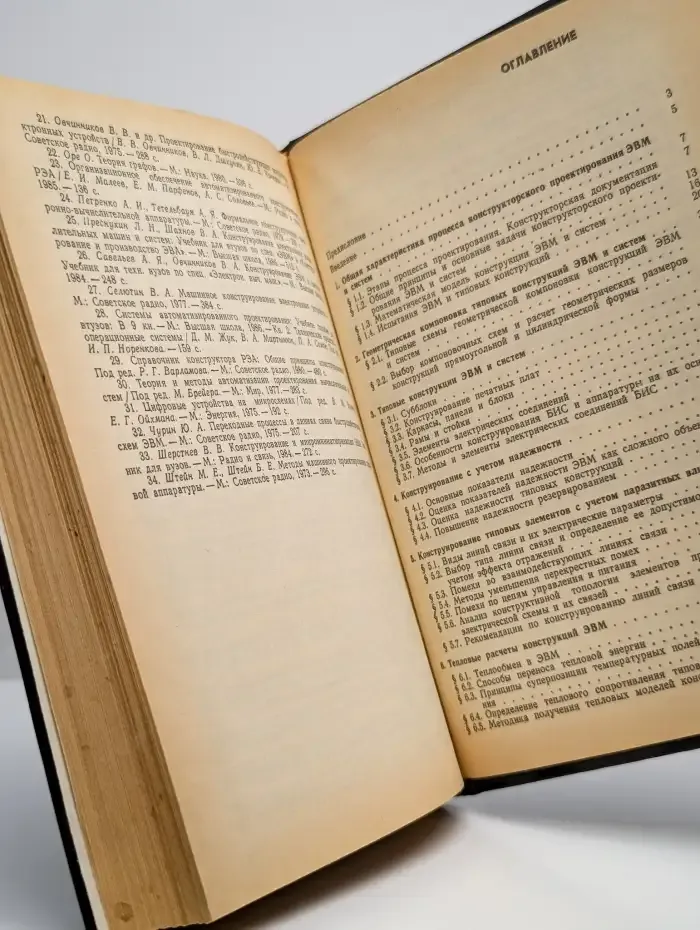 21. Овчинников В. В. и др. Проектирование быстродействующих
ктронных устройств / В. В. Овчинников, В. Л. Дшхунян, Ю. Е.
Советское радио, 1975. — 288 с.
22. Оре О. Теория графов. — М.: Наука, 1980. — 336 с.
23. Организационное обеспечение автоматизированного
РЭА / Е. И. Малеев, Е. М. Парфенов, А. С. Соловьев. — М.: Радио и
1985. — 136 с.
24. Петренко А. И., Тетельбаум А. Я. Формальное конструирование
ронно-вычислительной аппаратуры. — М.: Советское радио,
25. Преснухин Л. Н., Шахнов В. А. Конструирование
лительных машин и систем: Учебник для втузов по спец. «ЭВМ» и
рование и производство ЭВА». — М.: Высшая школа, 1986.
26. Савельев А. Я., Овчинников В. А. Конструирование ЭВМ
Учебник для техн. вузов по спец. «Электрон. выс. маш.». — М.:
1984. — 248 с.
27. Селютин В. А. Машинное конструирование электронных
М.: Советское радио, 1977. — 384 с.
28. Системы автоматизированного проектирования: Учебное
втузов: В 9 кн. — М.: Высшая школа, 1986. — Кн. 2. Технические
операционные системы / Д. М. Жук, В. А. Мартынюк, П. А. Сомов. Под
И. П. Норенкова. — 159 с.
29. Справочник конструктора РЭА: Общие принципы
Под ред. Р. Г. Варламова. — М.: Советское радио, 1980. — 480 с.
30. Теория и методы автоматизации проектирования
стем / Под ред. М. Брейера. — М.: Мир, 1977. — 283 с.
31. Цифровые устройства на микросхемах / Под ред. В. Л.
Е. Г. Ойхмана. — М.: Энергия, 1975. — 192 с.
32. Чурин Ю. А. Переходные процессы в линиях связи
схем ЭВМ. — М.: Советское радио, 1975. — 207 с.
33. Шерстнев В. В. Конструирование и микроминиатюризация
ник для вузов. — М.: Радио и связь, 1984. — 272 с.
34. Штейн М. Е., Штейн Б. Е. Методы машинного проектирования
вой аппаратуры. — М.: Советское радио, 1973. — 296 с.
ОГЛАВЛЕНИЕ
Предисловие 3
Введение 5
1. Общая характеристика процесса конструкторского проектирования ЭВМ
и систем 7
§ 1.1. Этапы процесса проектирования. Конструкторская документация 7
§ 1.2. Общие принципы и основные задачи конструкторского проекта-
рования ЭВМ и систем 13
§ 1.3. Математическая модель конструкции ЭВМ и систем 16
§ 1.4. Испытания ЭВМ и типовых конструкций
2. Геометрическая компоновка типовых конструкций ЭВМ и систем
§ 2.1. Типовые схемы геометрической компоновки конструкций ЭВМ
и систем
§ 2.2. Выбор компоновочных схем и расчет геометрических размеров
конструкций прямоугольной и цилиндрической формы
3. Типовые конструкции ЭВМ и систем
§ 3.1. Субблоки
§ 3.2. Конструирование печатных плат
§ 3.3. Каркасы, панели и блоки
§ 3.4. Рамы и стойки
§ 3.5. Элементы электрических соединений
§ 3.6. Особенности конструирования БИС и аппаратуры на их осно
§ 3.7. Методы и элементы электрических соединений БИС
4. Конструирование с учетом надежности
§ 4.1. Основные показатели надежности
§ 4.2. Оценка показателей надежности ЭВМ как сложного объек
§ 4.3. Оценка надежности типовых конструкций
§ 4.4. Повышение надежности резервированием
5. Конструирование типовых элементов с учетом паразитных
§ 5.1. Виды линий связи и их электрические параметры
§ 5.2. Выбор типа линии связи и определение ее допустимо
учетом эффекта отражений
§ 5.3. Помехи во взаимодействующих линиях связи
§ 5.4. Методы уменьшения перекрестных помех
§ 5.5. Помехи по цепям управления и питания
§ 5.6. Анализ конструктивной топологии элементов
электрической схемы и их связей
§ 5.7. Рекомендации по конструированию линий связи
6. Тепловые расчеты конструкций ЭВМ
§ 6.1. Теплообмен в ЭВМ
§ 6.2. Способы переноса тепловой энергии
§ 6.3. Принципы суперпозиции температурных полей
ния
§ 6.4. Определение теплового сопротивления типо
§ 6.5. Методика получения тепловых моделей конс